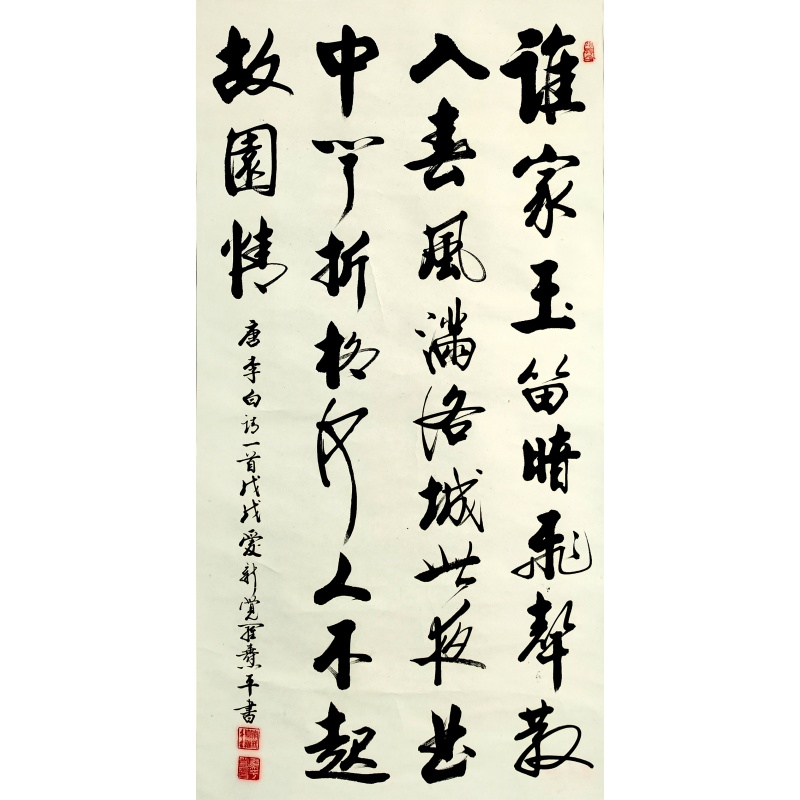 誰家玉笛暗飛聲散
入春風滿洛城此夜曲
中聞折柳何人不起
故園情
唐李白詩一首戊戌愛新覺羅平書